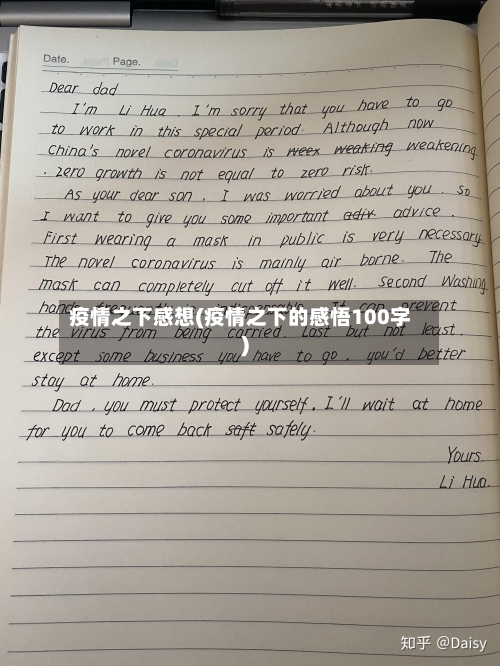 Date. Page.
Dear dad
I'm Li Hua. I'm sorry that you have to go
to work in this special period. Although now
China's novel coronavirus is weex weaking weakening
. zero growth is not equal to zero risk.
As your dear son, I was worried about you. So
I want to give you some important adiv. advice.
First wearing a mask in public is very necessary
The novel coronavirus is mainly air borne. The
mask can completely cut off it well. Second Washing
hands frequently is indispensable. It can prevent
疫情之下感想(疫情之下的感悟100字
)
the virus from being carried. Last but not least.
except some business you have to go, you'd better
stay at home.
Dad, you must protect yourself, I'll wait at home
for you to come back saft safely.
Yours.
Li Hua.
知乎 @Daisy